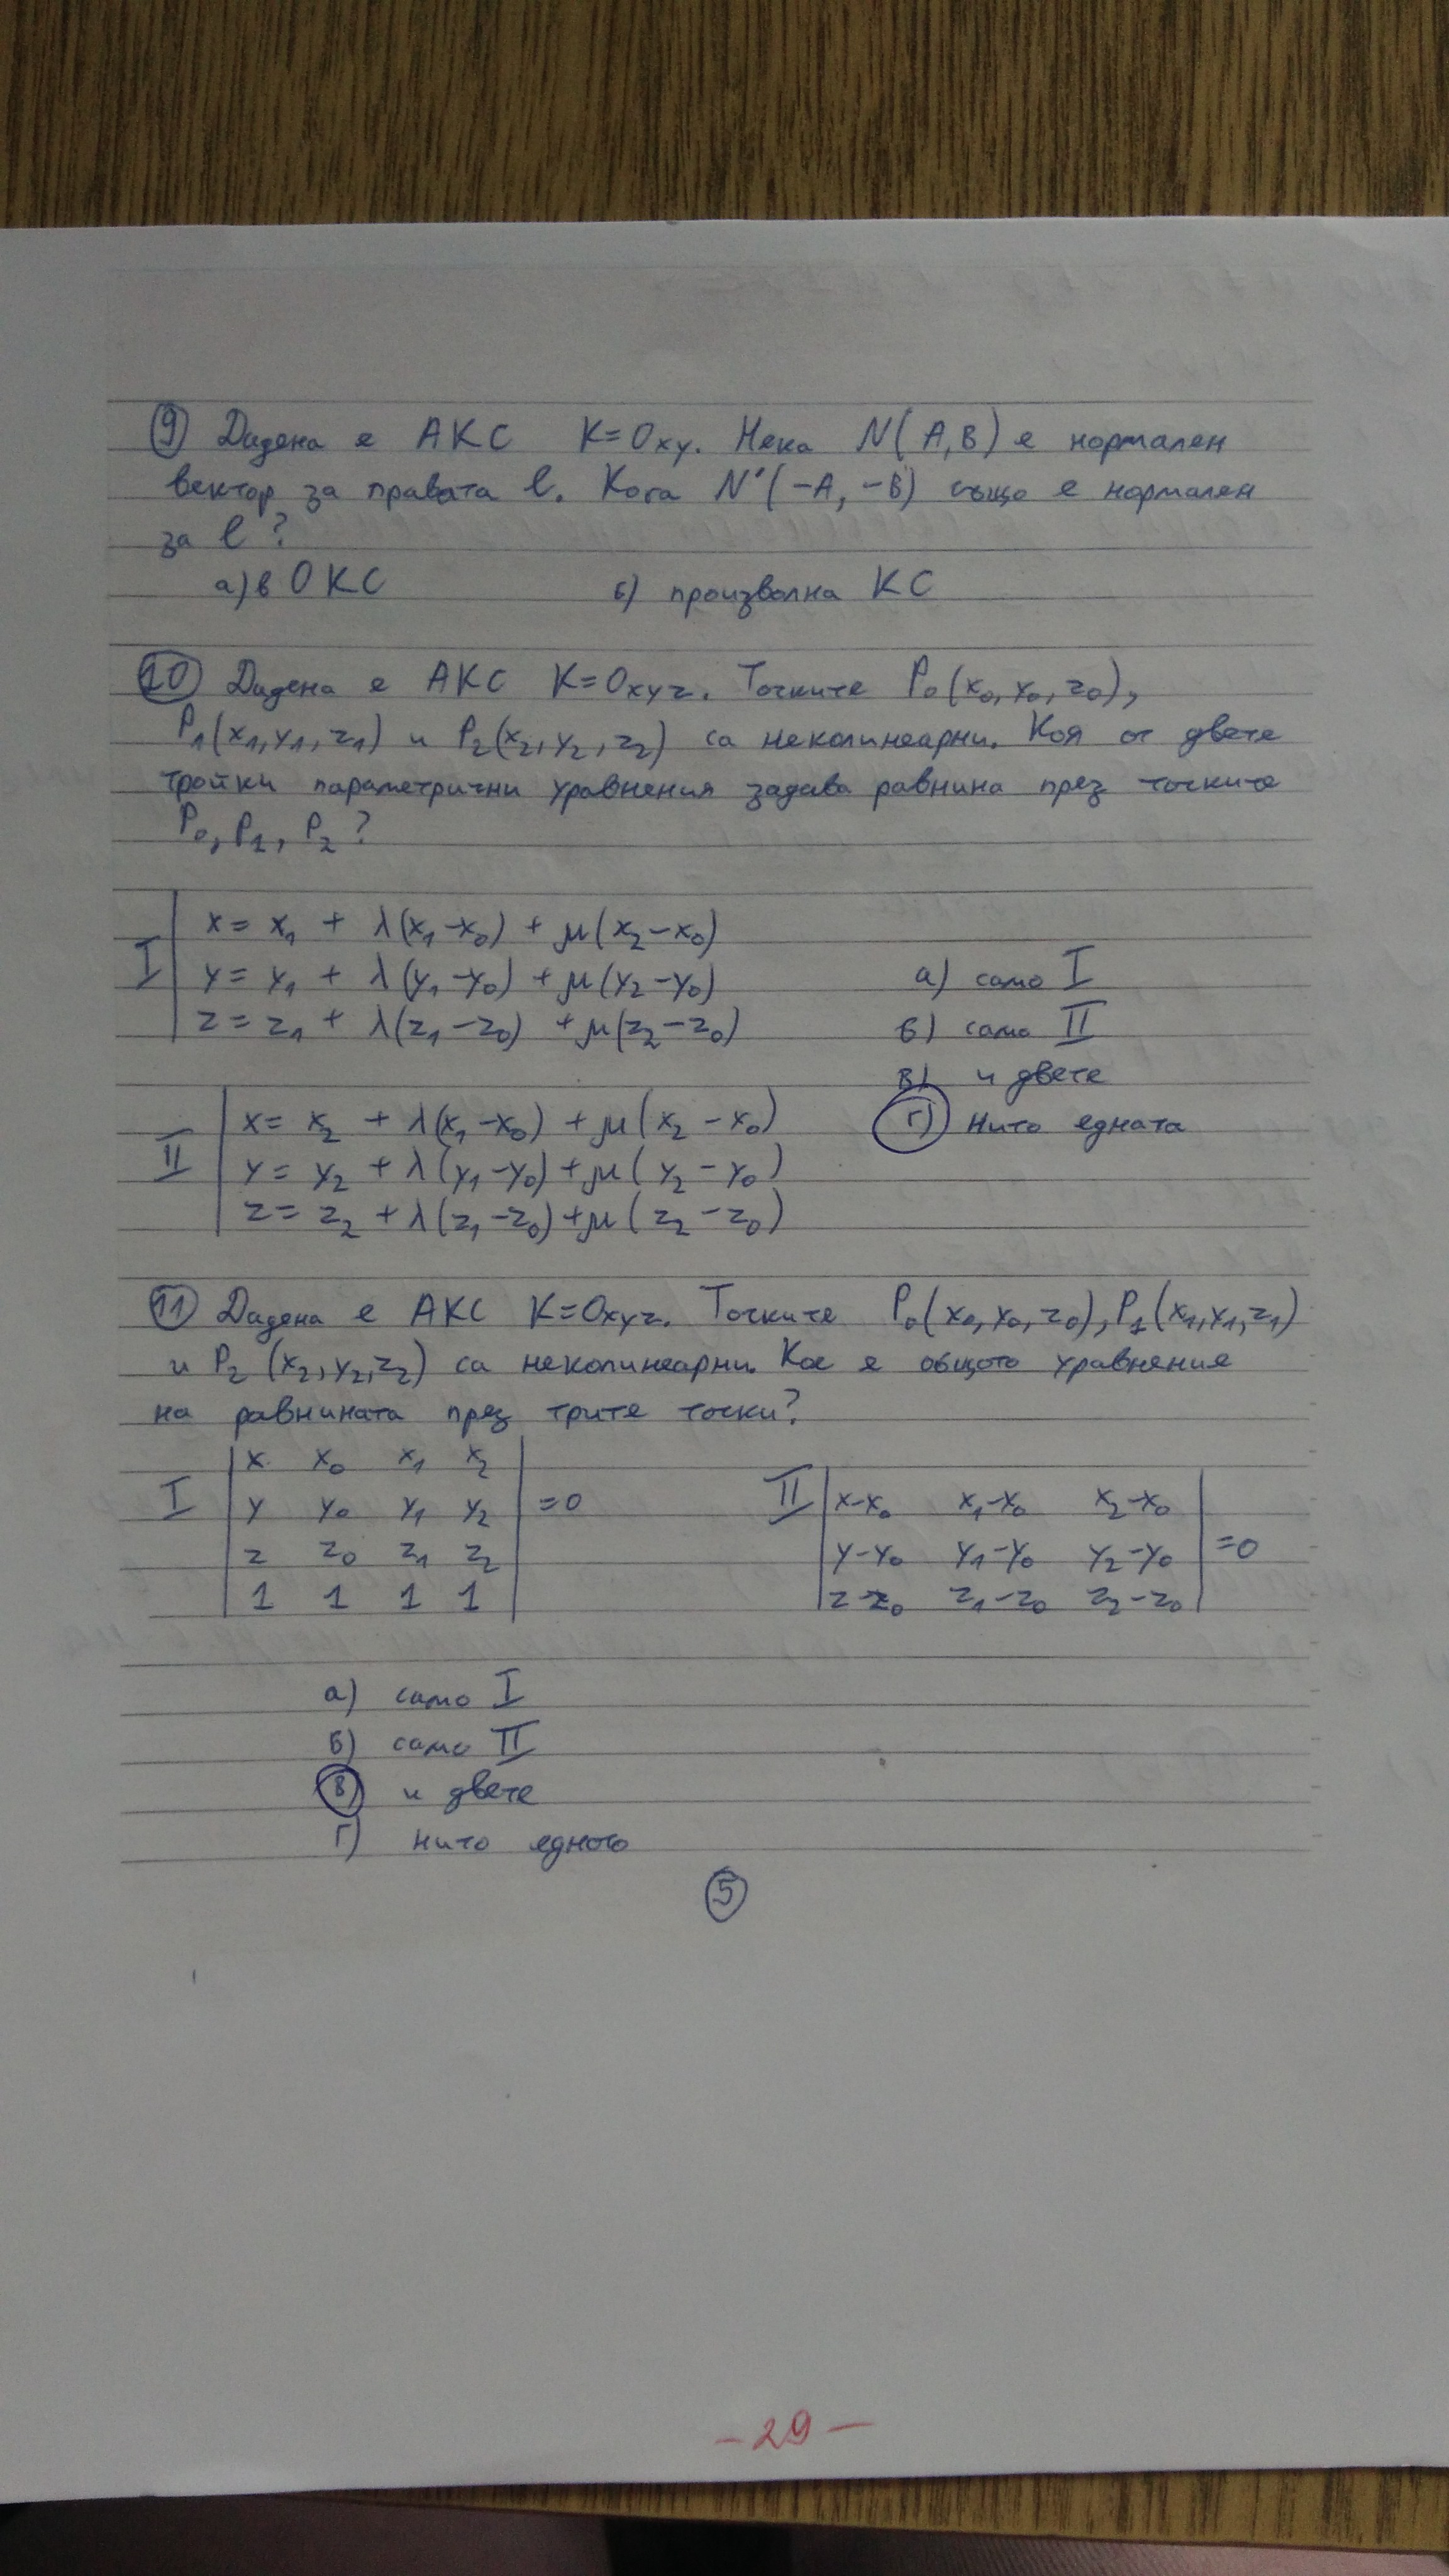 9 Дадена е АКС K=Oxy. Нека N(A,B) е нормален
вектор за правата l. Кога N'(-A, -B) също е нормален
за l?
а) в ОКС б) произволна КС
10 Дадена е АКС K=Oxyz. Точките P₀(x₀, y₀, z₀),
P₁(x₁, y₁, z₁) и P₂(x₂, y₂, z₂) са неколинеарни. Коя от двете
тройки параметрични уравнения задава равнина през точките
P₀, P₁, P₂?
x = x₁ + λ(x₁-x₀) + μ(x₂-x₀)
I y = y₁ + λ(y₁-y₀) + μ(y₂-y₀) а) само I
z = z₁ + λ(z₁-z₀) + μ(z₂-z₀) б) само II
в) и двете
x = x₂ + λ(x₁-x₀) + μ(x₂-x₀) г) нито едната
II y = y₂ + λ(y₁-y₀) + μ(y₂-y₀)
z = z₂ + λ(z₁-z₀) + μ(z₂-z₀)
11 Дадена е АКС K=Oxyz. Точките P₀(x₀, y₀, z₀), P₁(x₁, y₁, z₁)
и P₂(x₂, y₂, z₂) са неколинеарни. Кое е общото уравнения
на равнината през трите точки?
x x₀ x₁ x₂
I y y₀ y₁ y₂ =0 II x-x₀ x₁-x₀ x₂-x₀
z z₀ z₁ z₂ y-y₀ y₁-y₀ y₂-y₀ =0
1 1 1 1 z-z₀ z₁-z₀ z₂-z₀
а) само I
б) само II
в) и двете
г) нито едното
5
-29-